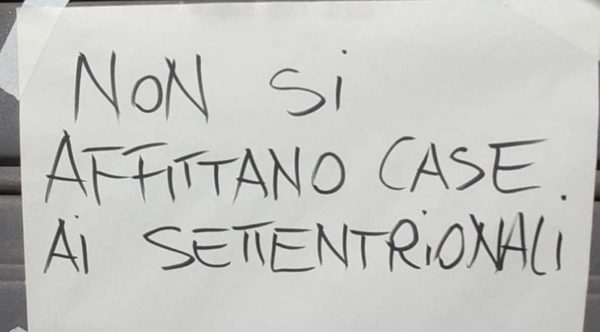 NON SI
AFFITTANO CASE.
AI SETTENTRIONALI